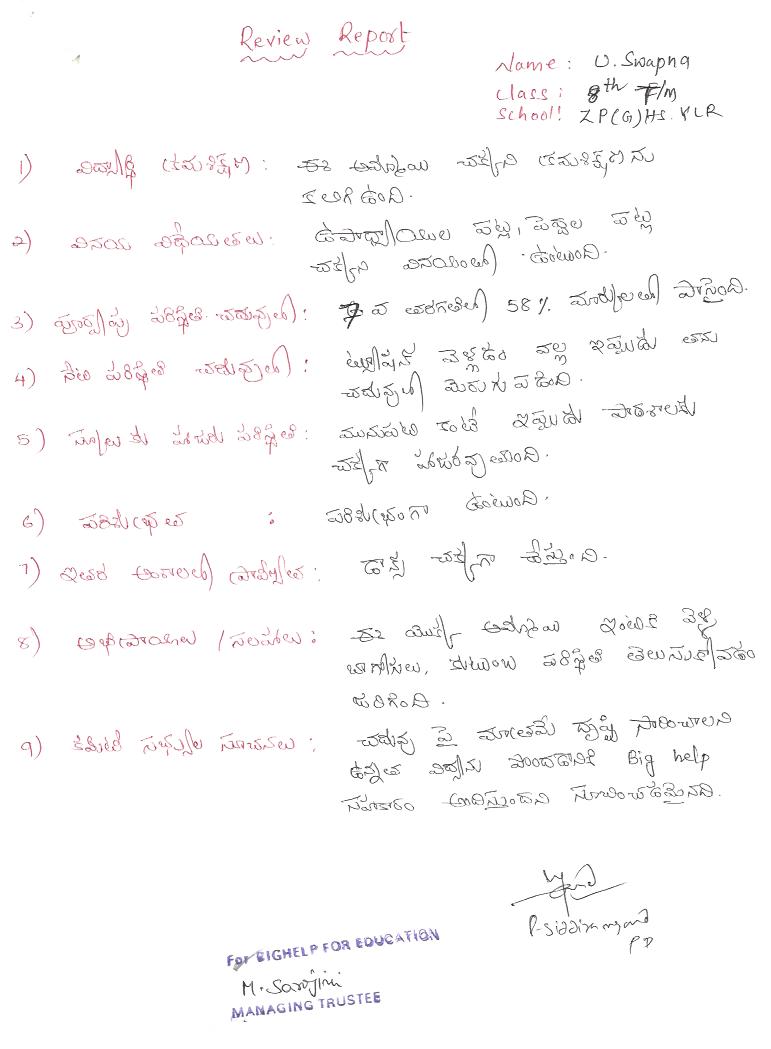 Review Report
Name : U. Swapna
Class : 8th T/m
School : ZP(G)HS. YLR
1) విద్యార్థి క్రమశిక్షణ : ఈ అమ్మాయి చక్కని క్రమశిక్షణను
కలిగి ఉంది.
2) వినయ విధేయతలు : ఉపాధ్యాయుల పట్ల, పెద్దల పట్ల
చక్కని వినయంతో ఉంటుంది.
3) పూర్వపు పరిస్థితి చదువులో : 7 వ తరగతిలో 58% మార్కులతో పాసైంది.
4) నేటి పరిస్థితి చదువులో : ట్యూషన్ వెళ్లడం వల్ల ఇప్పుడు తను
చదువులో మెరుగు పడింది.
5) స్కూలుకు హాజరు పరిస్థితి : మునుపటి కంటే ఇప్పుడు పాఠశాలకు
చక్కగా హాజరవుతుంది.
6) పరిశుభ్రత : పరిశుభ్రంగా ఉంటుంది.
7) ఇతర అంశాలలో ప్రావీణ్యత : డాన్స్ చక్కగా చేస్తుంది.
8) అభిప్రాయాలు / సలహాలు : ఈ యొక్క అమ్మాయి ఇంటికి వెళ్ళి
బాగోగులు, కుటుంబ పరిస్థితి తెలుసుకోవడం
జరిగింది.
9) కమిటీ సభ్యుల సూచనలు : చదువు పై మాత్రమే దృష్టి సారించాలని
ఉన్నత విద్యను పొందడానికి Big help
సహకారం అందిస్తుందని సూచించడమైనది.
PD
For BIGHELP FOR EDUCATION
M. Sarojini
MANAGING TRUSTEE